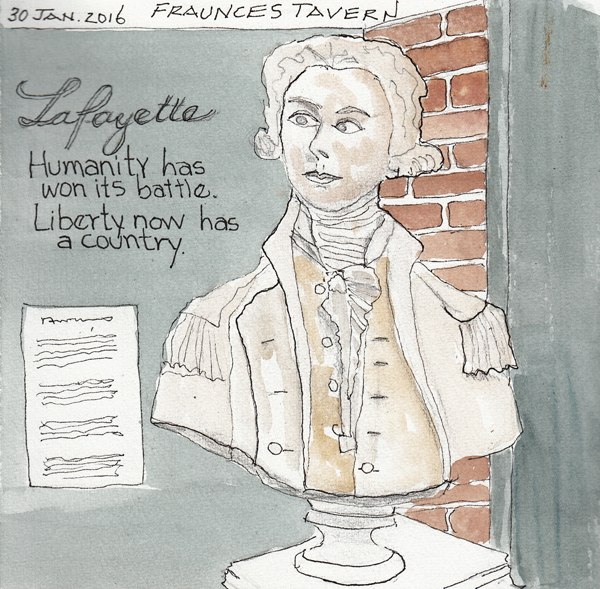 30 JAN. 2016 FRAUNCES TAVERN
Lafayette
Humanity has
won its battle.
Liberty now has
a country.